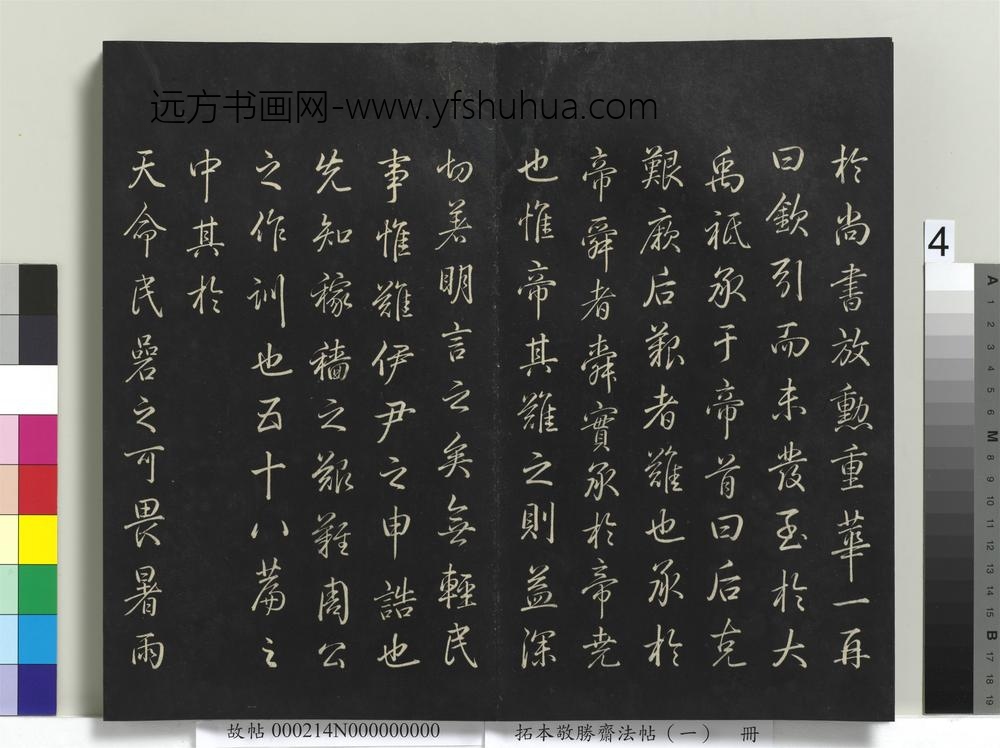 远方书画网-www.yfshuhua.com
於尚書放勲重華一再
曰欽引而未發至於大
禹祗承于帝首曰后克
艱厥后艱者難也承於
帝舜者舜實承於帝堯
也惟帝其難之則益深
切著明言之矣無輕民
事惟難伊尹之申誥也
先知稼穡之艱難周公
之作訓也五十八篇之
中其於
天命民碞之可畏暑雨
4
故帖 000214N000000000
拓本敬勝齋法帖（一） 冊
A 1 2 3 4 5 6 M 8 9 10 11 12 13 14 15 B 17 18 19